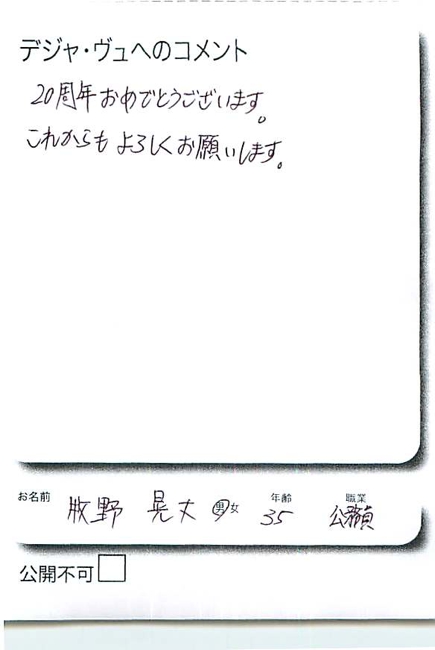 デジャ・ヴュへのコメント
20周年おめでとうございます。
これからもよろしくお願いします。
お名前 牧野 晃丈 男女 年齢 35 職業 公務員
公開不可